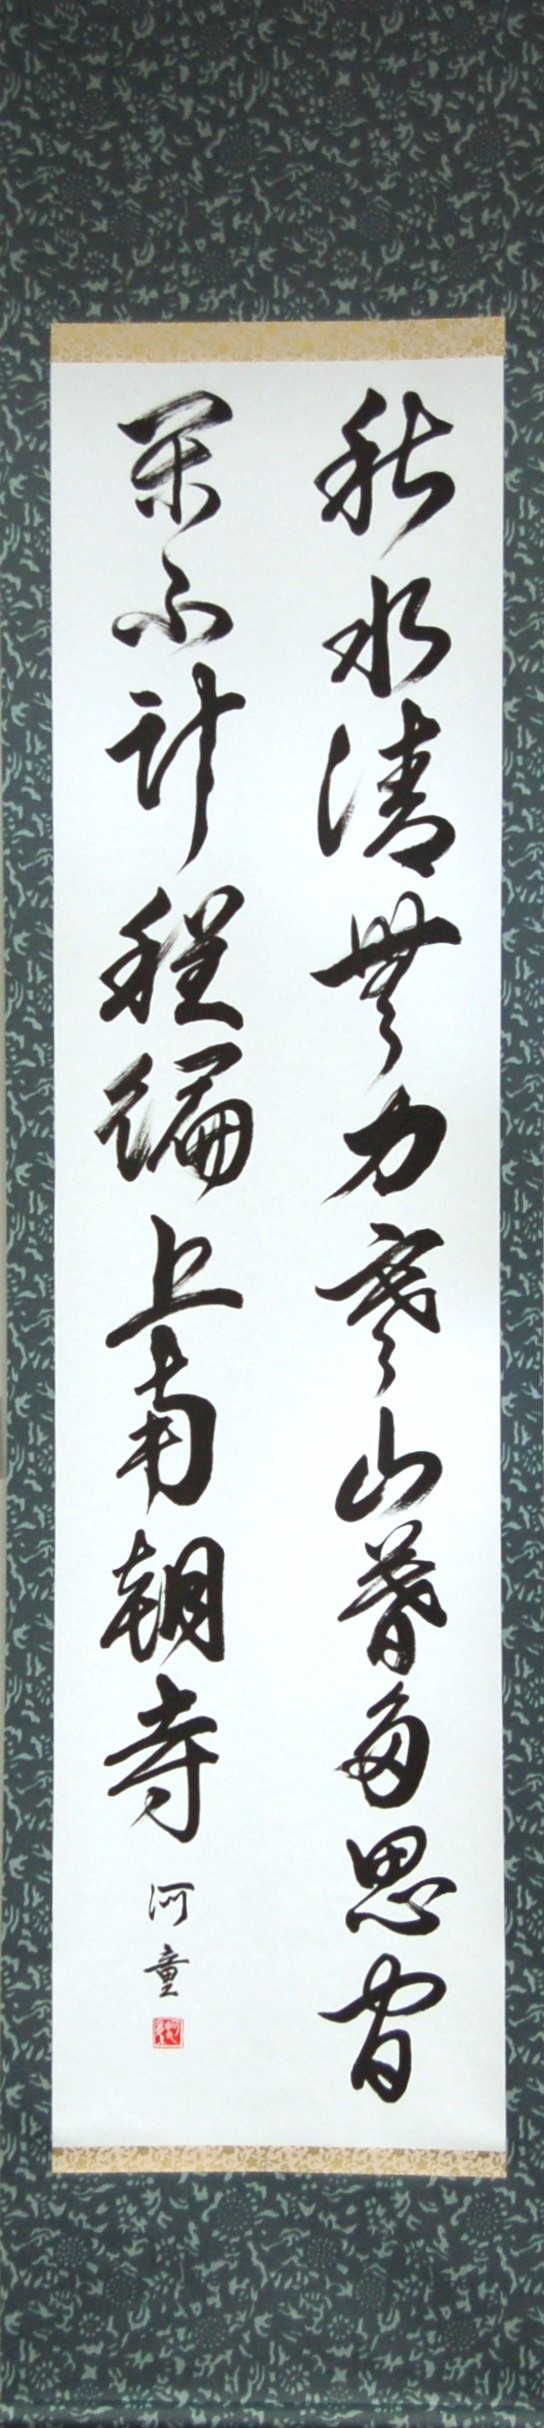 秋水清無力寒山暮多思官
閑不計程徧上南朝寺
河童